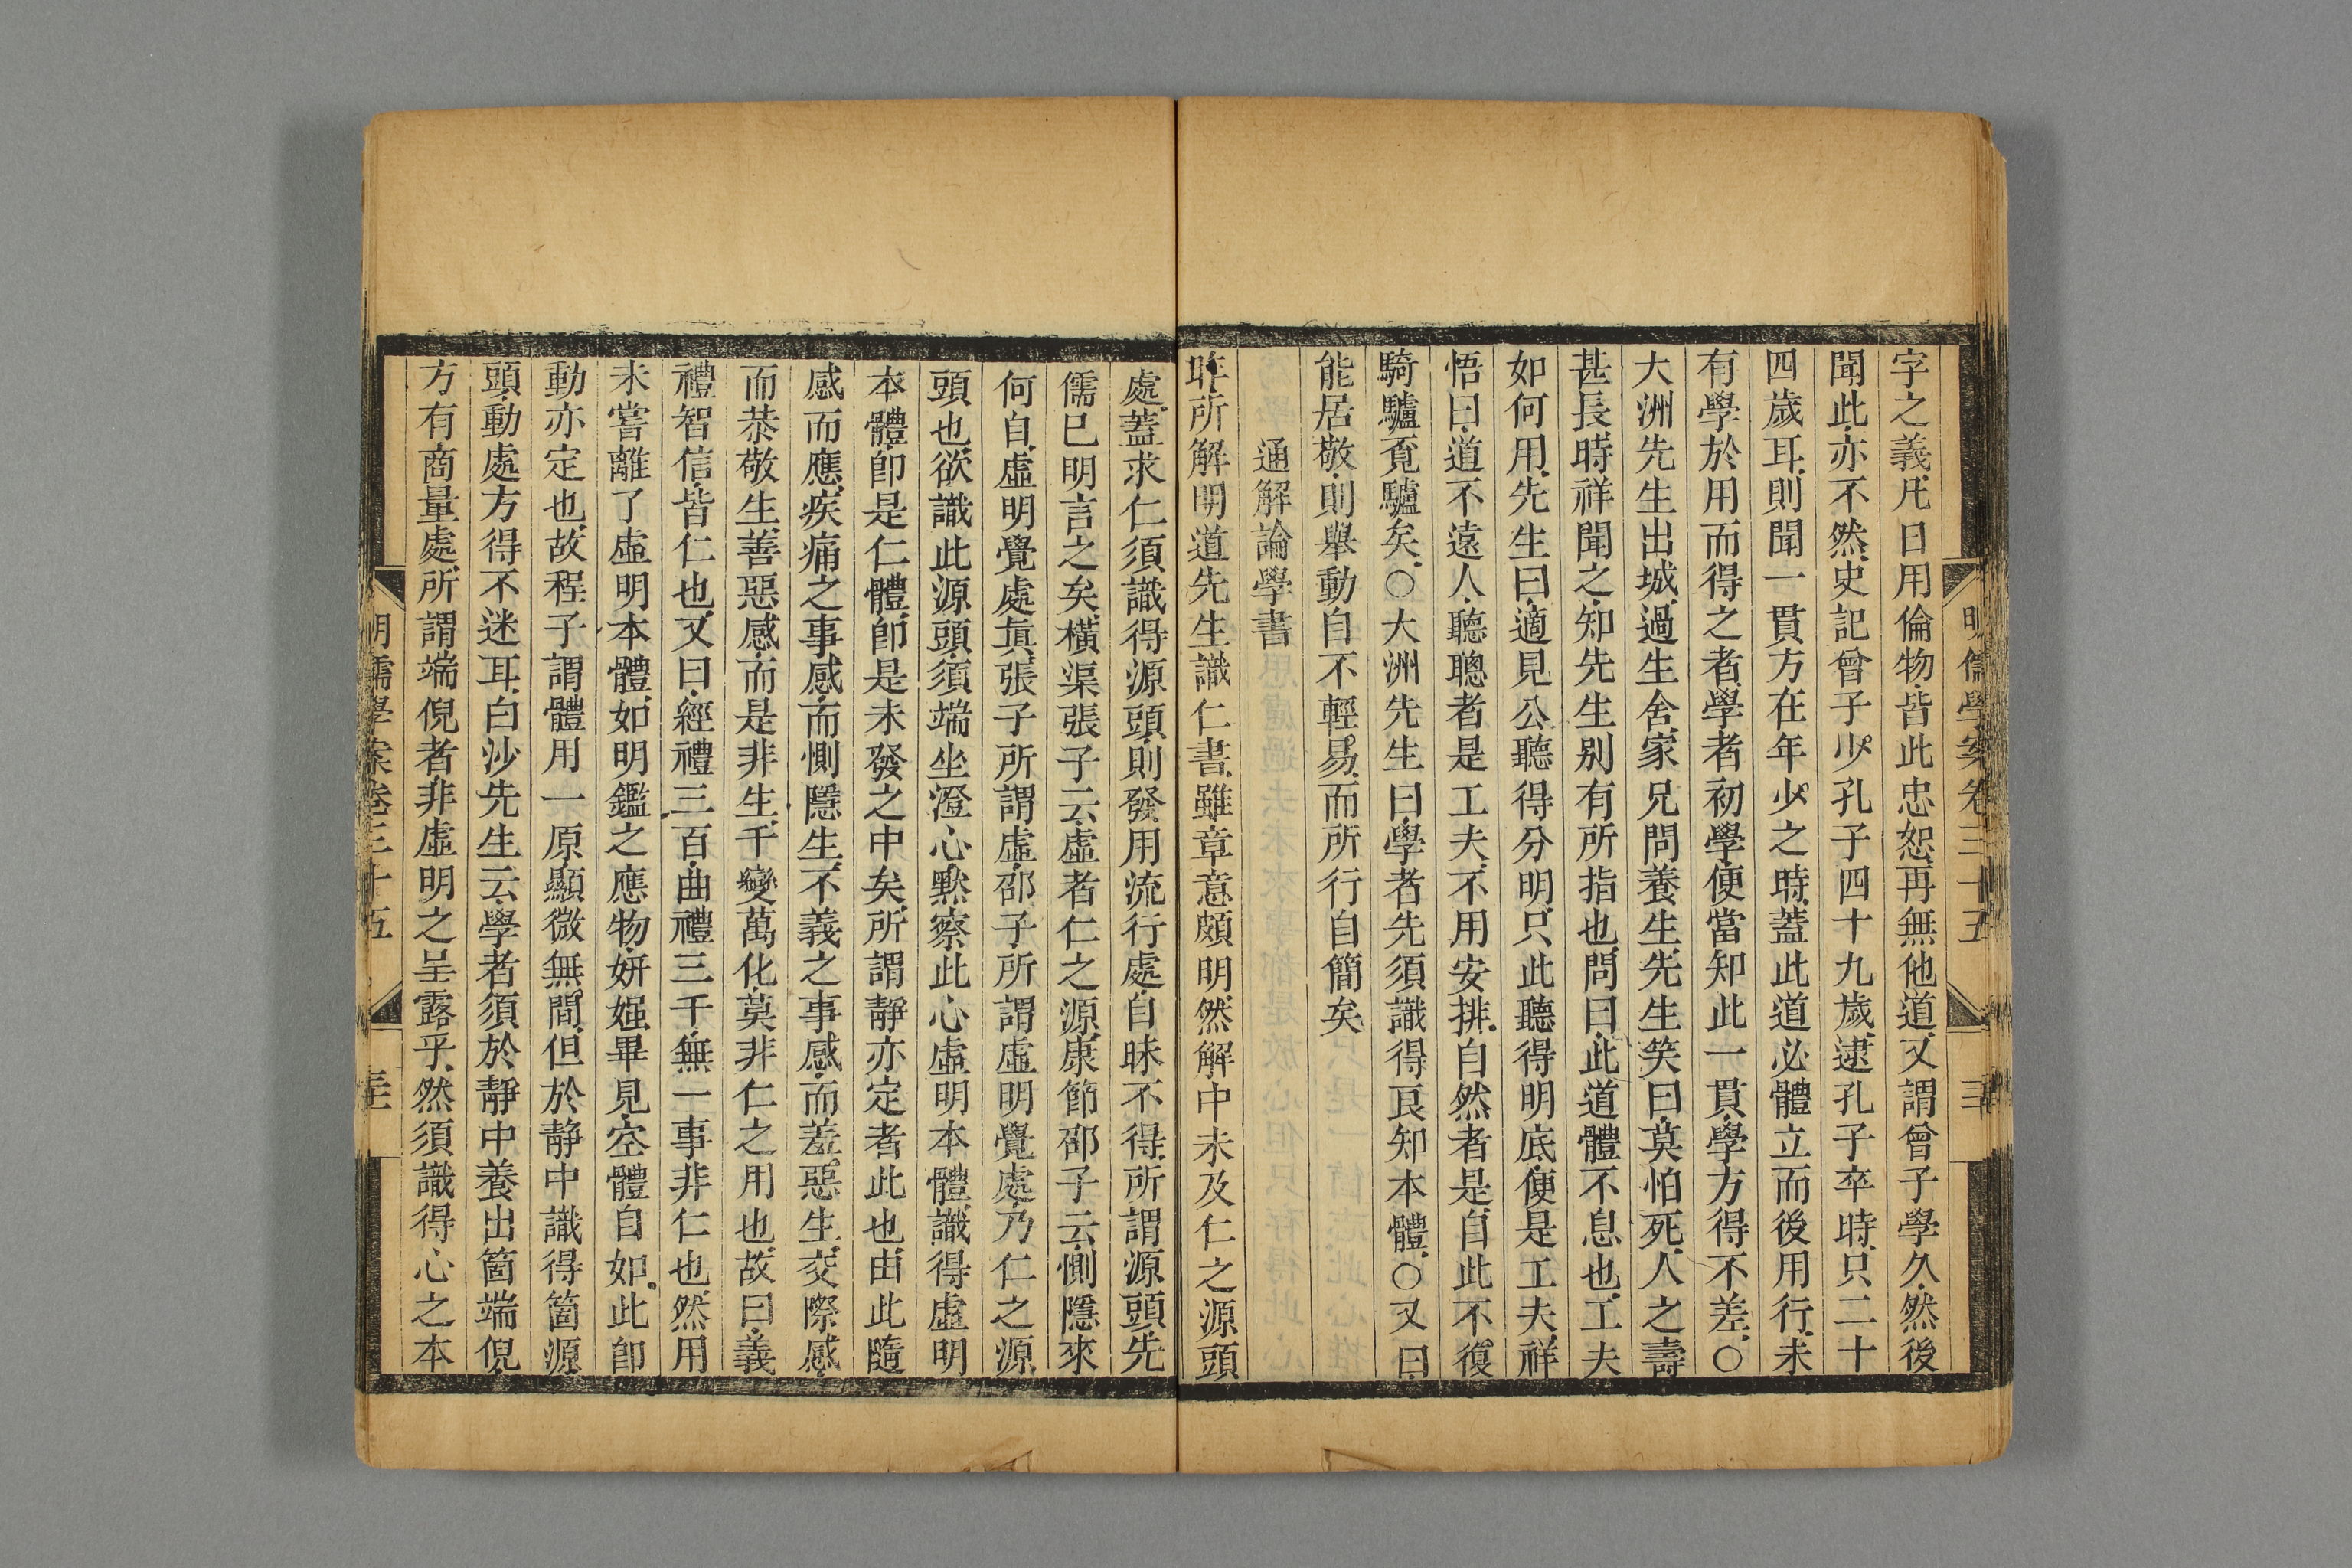 明儒學案卷三十五
字之義凡日用倫物皆此忠恕再無他道又謂曾子學久然後
聞此亦不然史記曾子少孔子四十九歲逮孔子卒時只二十
四歲耳則聞一貫方在年少之時蓋此道必體立而後用行未
有學於用而得之者學者初學便當知此一貫學方得不差○
大洲先生出城過生舍家兄問養生先生笑曰莫怕死人之壽
甚長時祥聞之知先生別有所指也問曰此道體不息也工夫
如何用先生曰適見公聽得分明只此聽得明底便是工夫祥
悟曰道不遠人聽聰者是工夫不用安排自然者是自此不復
騎驢覓驢矣○大洲先生曰學者先須識得良知本體○又曰
能居敬則舉動自不輕易而所行自簡矣
通解論學書
昨所解明道先生識仁書雖章意頗明然解中未及仁之源頭
處蓋求仁須識得源頭則發用流行處自昧不得所謂源頭先
儒已明言之矣橫渠張子云虛者仁之源康節邵子云惻隱來
何自虛明覺處眞張子所謂虛邵子所謂虛明覺處乃仁之源
頭也欲識此源頭須端坐澄心默察此心虛明本體識得虛明
本體卽是仁體卽是未發之中矣所謂靜亦定者此也由此隨
感而應疾痛之事感而惻隱生不義之事感而羞惡生交際感
而恭敬生善惡感而是非生千變萬化莫非仁之用也故曰義
禮智信皆仁也又曰經禮三百曲禮三千無一事非仁也然用
未嘗離了虛明本體如明鑑之應物妍媸畢見空體自如此卽
動亦定也故程子謂體用一原顯微無間但於静中識得箇源
頭動處方得不迷耳白沙先生云學者須於靜中養出箇端倪
方有商量處所謂端倪者非虛明之呈露乎然須識得心之本
明儒學案卷三十五